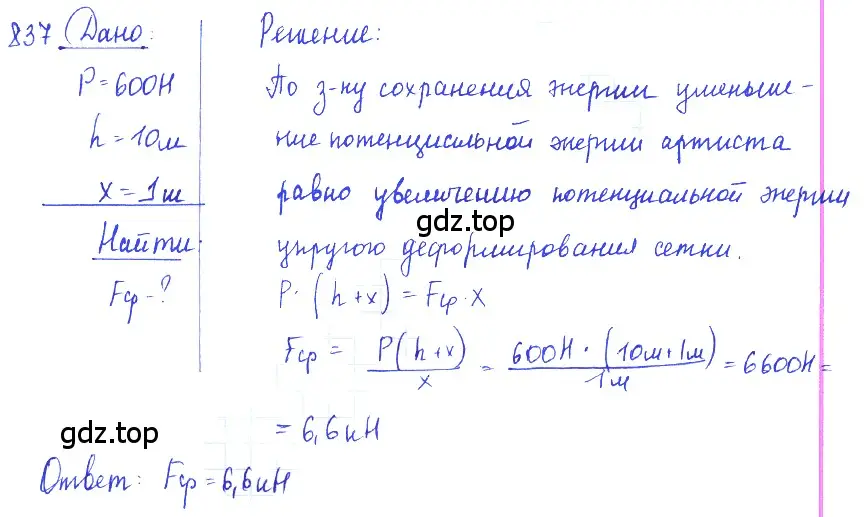 837 Дано:
P = 600Н
h = 10м
x = 1м
Найти:
Fср - ?
Решение:
По з-ну сохранения энергии уменьше-
ние потенциальной энергии артиста
равно увеличению потенциальной энергии
gdz.top
упругого деформирования сетки.
P · (h + x) = Fср · x
Fср = P(h+x)/x = 600Н · (10м + 1м)/1м = 6600Н =
= 6,6 кН
gdz.top
Ответ: Fср = 6,6 кН